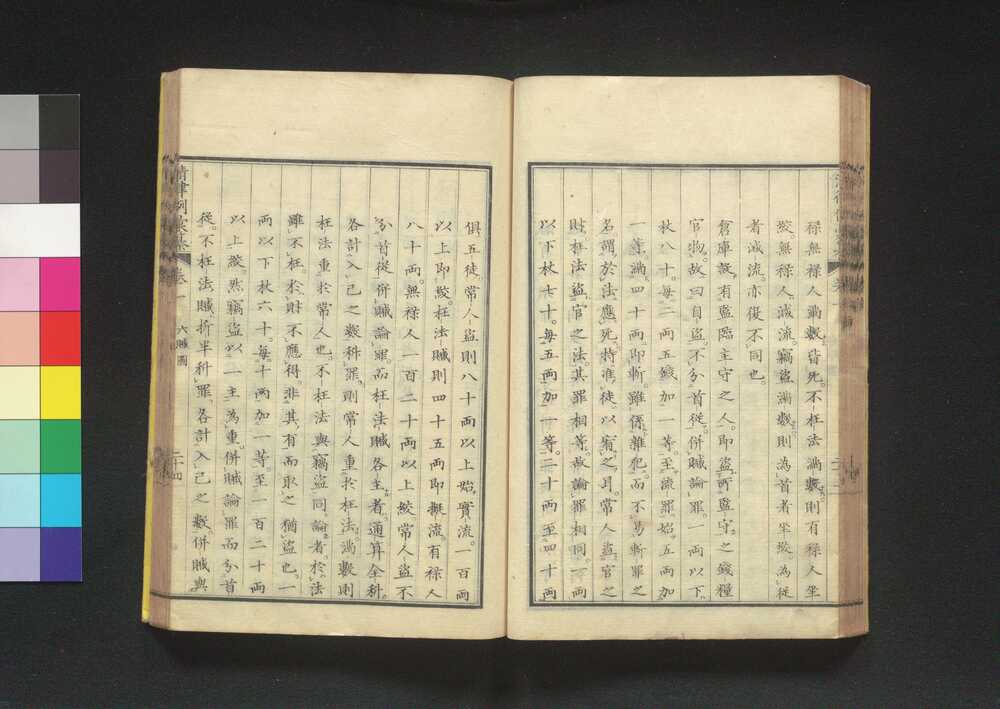 祿無祿人滿數。皆死。不枉法滿數。則有祿人坐
絞。無祿人。減流。竊盜滿數。則為首者坐絞。為從
者減流。亦復不同也。
倉庫設有監臨主守之人。即盜所監守之錢糧
官物。故曰自盜。不分首從。併贓論罪。一兩以下。
杖八十。每二兩五錢加一等。至流罪始。五兩加
一等。滿四十兩。即斬。雖係雜犯。而不易斬罪之
名。謂於法應死。特准徒以宥之耳。常人盜官之
財。枉法盜官之法。其罪相等。故論罪相同。一兩
以下杖七十。每五兩加一等。二十兩至四十兩
俱五徒。常人盜則八十兩以上。始實流。一百兩
以上即絞。枉法贓則四十五兩即擬流。有祿人
八十兩。無祿人一百二十兩以上絞。常人盜不
分首從。併贓論罪。而枉法贓。各主者。通算全科。
各計入己之數科罪。則常人重於枉法。滿數則
枉法重於常人也。不枉法與竊盜同論者。於法
雖不枉。於財不應得。非其有而取之猶盜也。一
兩以下杖六十。每十兩加一等。至一百二十兩
以上絞。然竊盜以一主為重。併贓論罪而分首
從。不枉法贓。折半科罪。各計入己之數。併贓與
清律例彙纂 卷一 六贓圖 二十四